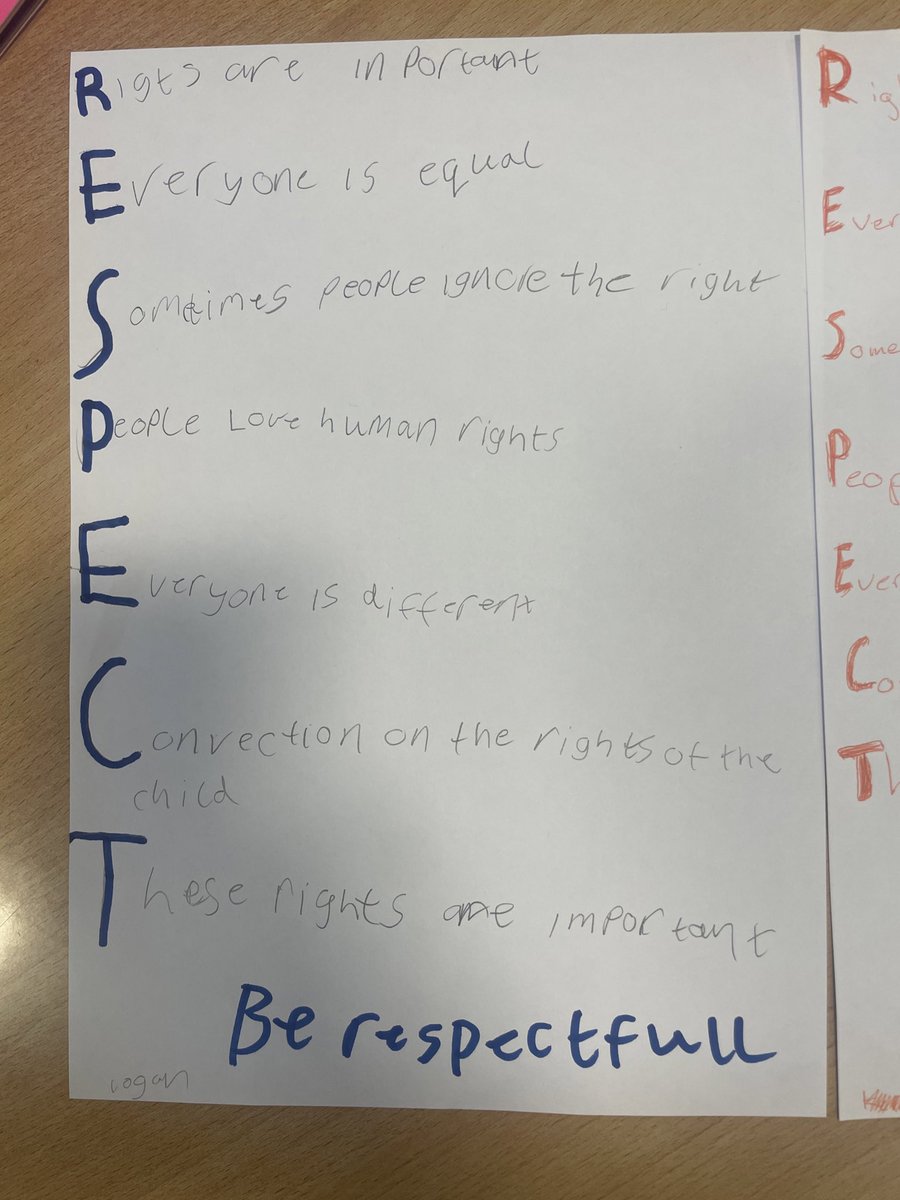 Rigts are inportant
Everyone is equal
Somtimes people ignore the right
People Love human rights
Everyone is different
Convection on the rights of the
child
These rights are important
Be respectfull
Logan
R
Ever
Some
Peop
Ever
Co
Th